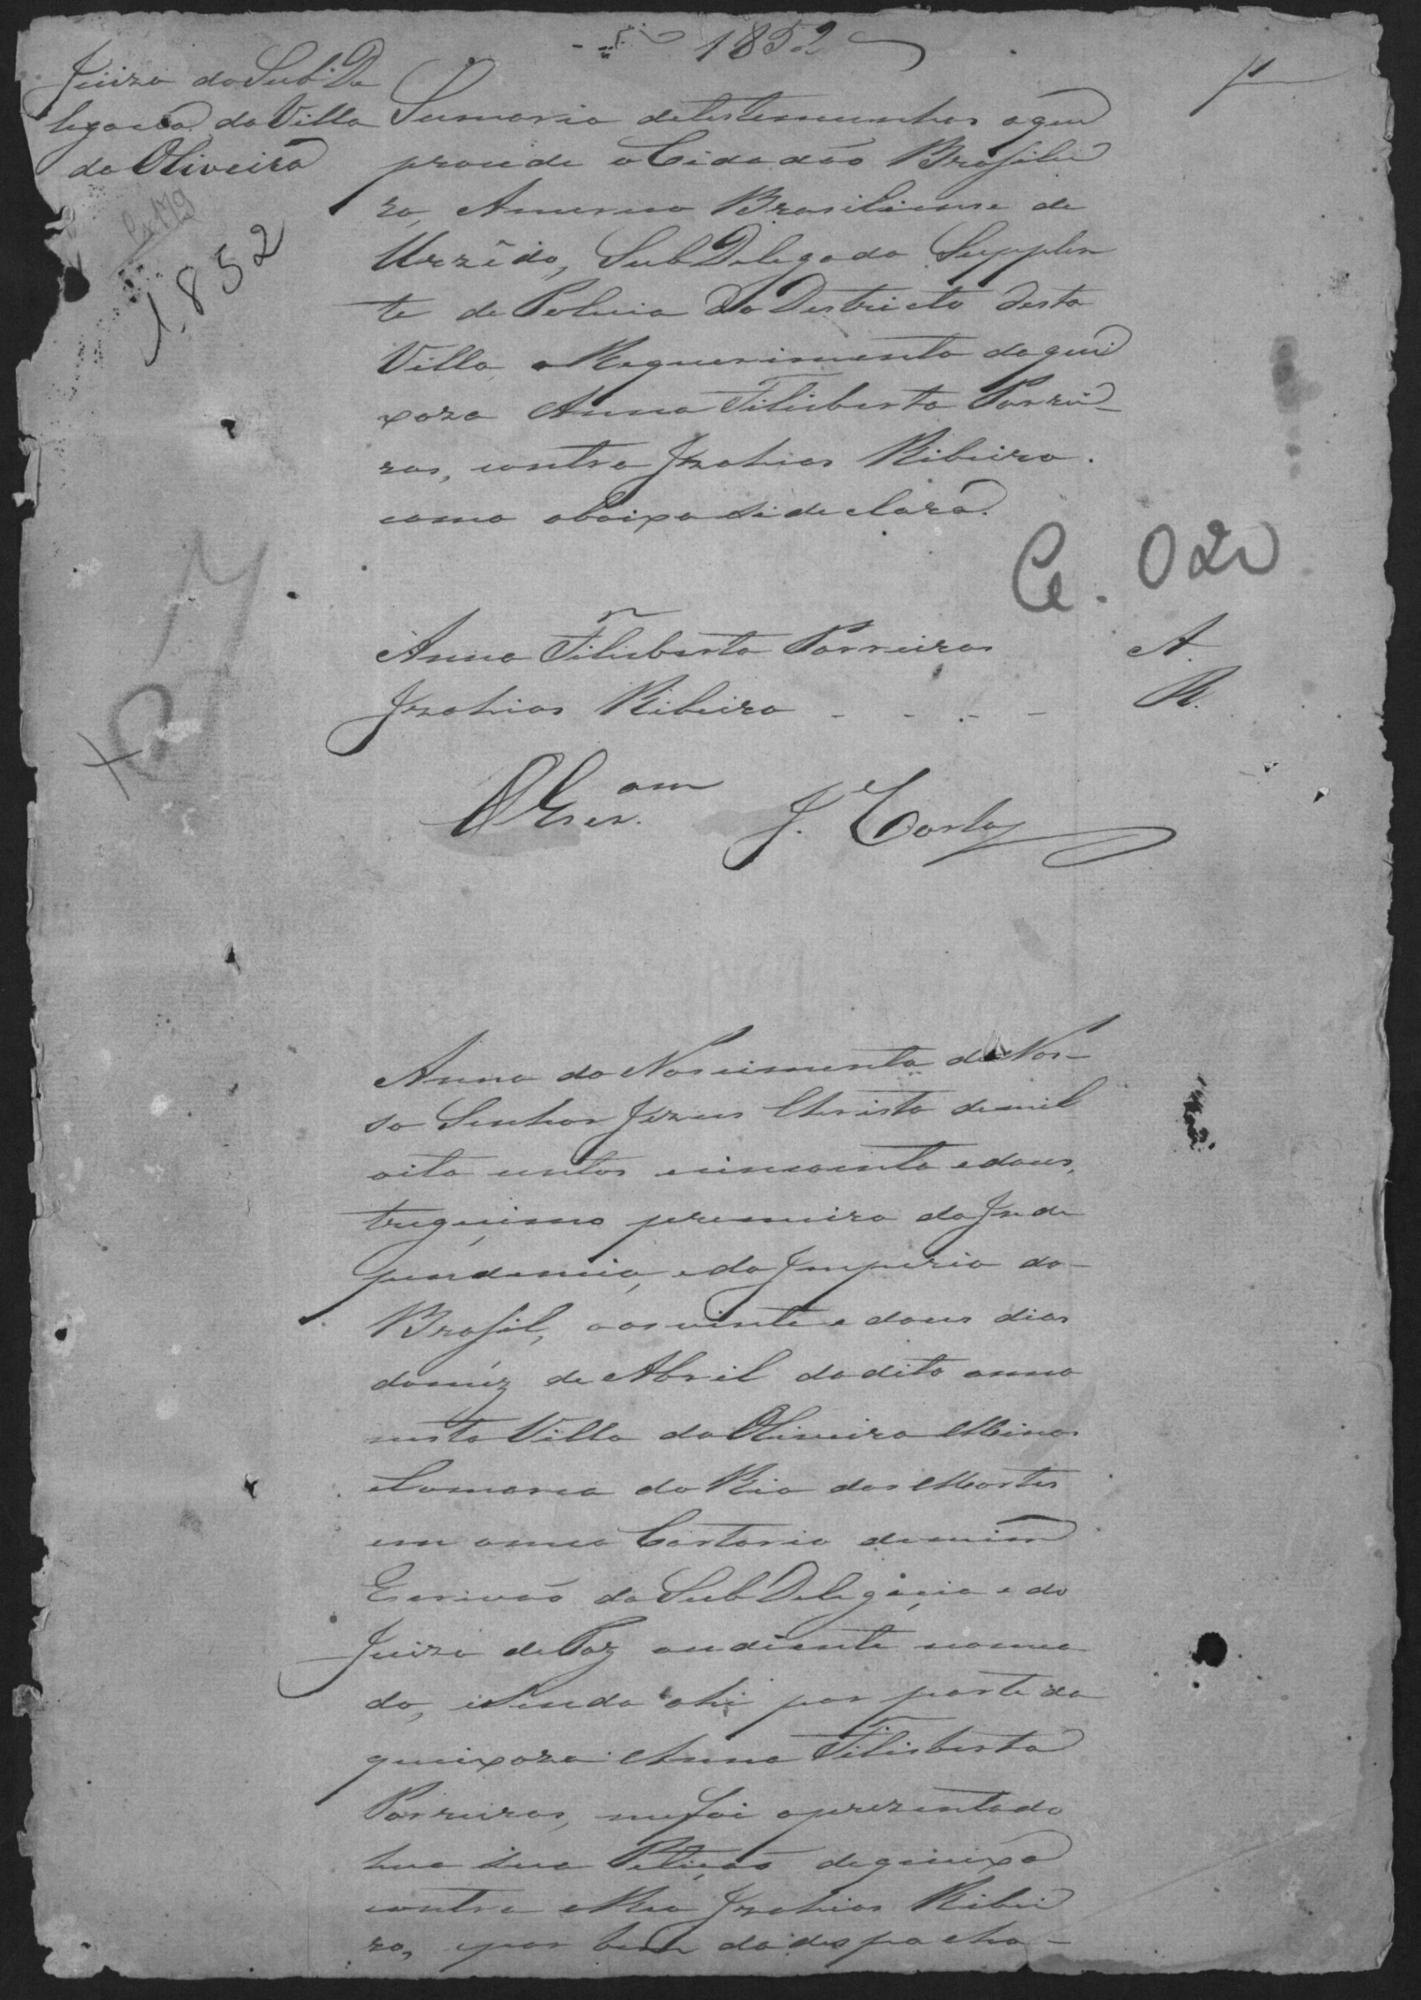 1852
Juizo da SubDe
legacia da Villa
da Oliveira
1852
Sumario detestemunhas aque
procede o Cidadão Brasilei
ro, Americo Brasiliense de
SubDelegado Supplen
te de Policia do Districto desta
Villa a Requerimento da quei
xoza Anna Filisberta Parrei
ras, contra Izahias Ribeiro.
como abaixo sedeclara.
Ce. 020
Anna Filisberta Parreiras A.
Izahias Ribeiro - - - - R.
O Escr.am J. Costa
Anno do Nascimento de Nos-
so Senhor Jezus Christo demil
oito centos ecincoenta edous,
trigecimo premeiro da Inde
pendencia, e do Imperio do-
Brasil, aos vinte e dous dias
domêz de Abril do dito anno
nesta Villa da Oliveira Minas
Comarca do Rio das Mortes
em omeo Cartorio demim
Escrivão da SubDelegacia e do
Juizo dePaz audiante nomea
do, esendo ahi por parte da
queixoza Anna Filisberta
Parreiras, mefoi aprezentado
hua sua Petição dequeixa
contra oReo Izahias Ribei
ro, epor bem do despacho-